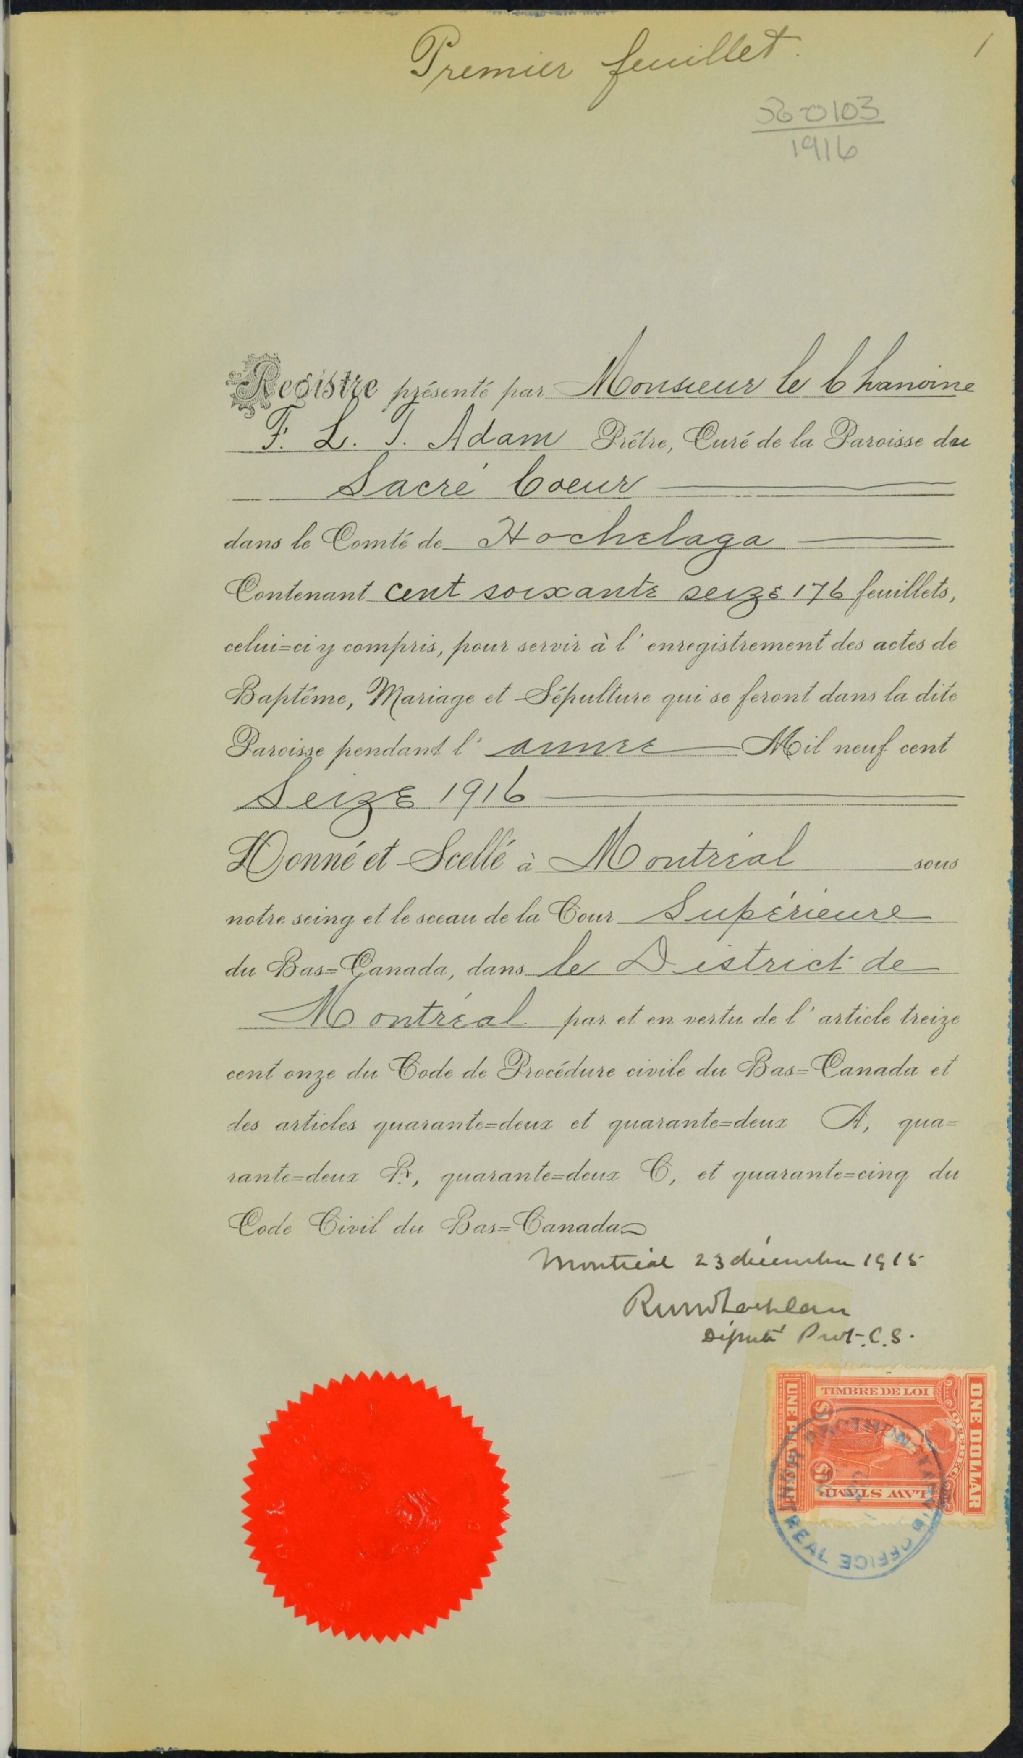 Premier feuillet.
1
1916
Registre présenté par Monsieur le Chanoine
F. L. T. Adam Prêtre, Curé de la Paroisse du
Sacré Coeur
dans le Comté de Hochelaga
Contenant cent soixante seize 176 feuillets,
celui=ci y compris, pour servir à l'enregistrement des actes de
Baptême, Mariage et Sépulture qui se feront dans la dite
Paroisse pendant l'année Mil neuf cent
Seize 1916
Donné et Scellé à Montréal sous
notre seing et le sceau de la Cour Supérieure
du Bas=Canada, dans le District de
Montréal par et en vertu de l'article treize
cent onze du Code de Procédure civile du Bas=Canada et
des articles quarante=deux et quarante=deux A, qua=
rante=deux B, quarante=deux C, et quarante=cinq du
Code Civil du Bas=Canada
Montréal 23 décembre 1915
Député Prot. C. S.
TIMBRE DE LOI
ONE DOLLAR
UNE PIASTRE
$1
$1
LAW STAMP
PROTHONOTARY'S OFFICE
MONTREAL